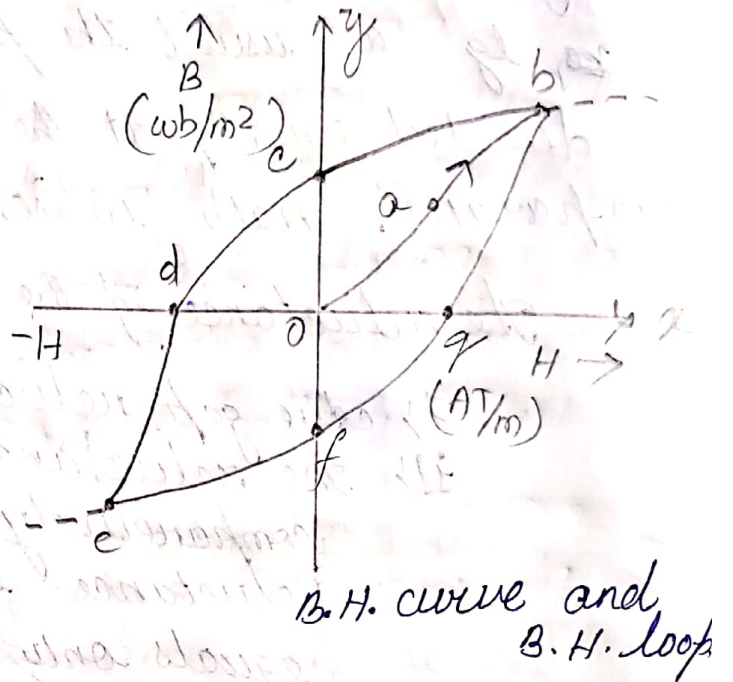 y
B
(wb/m²)
b
c
a
d
-H
O
g
x
H →
(AT/m)
f
e
B.H. curve and
B.H. loop